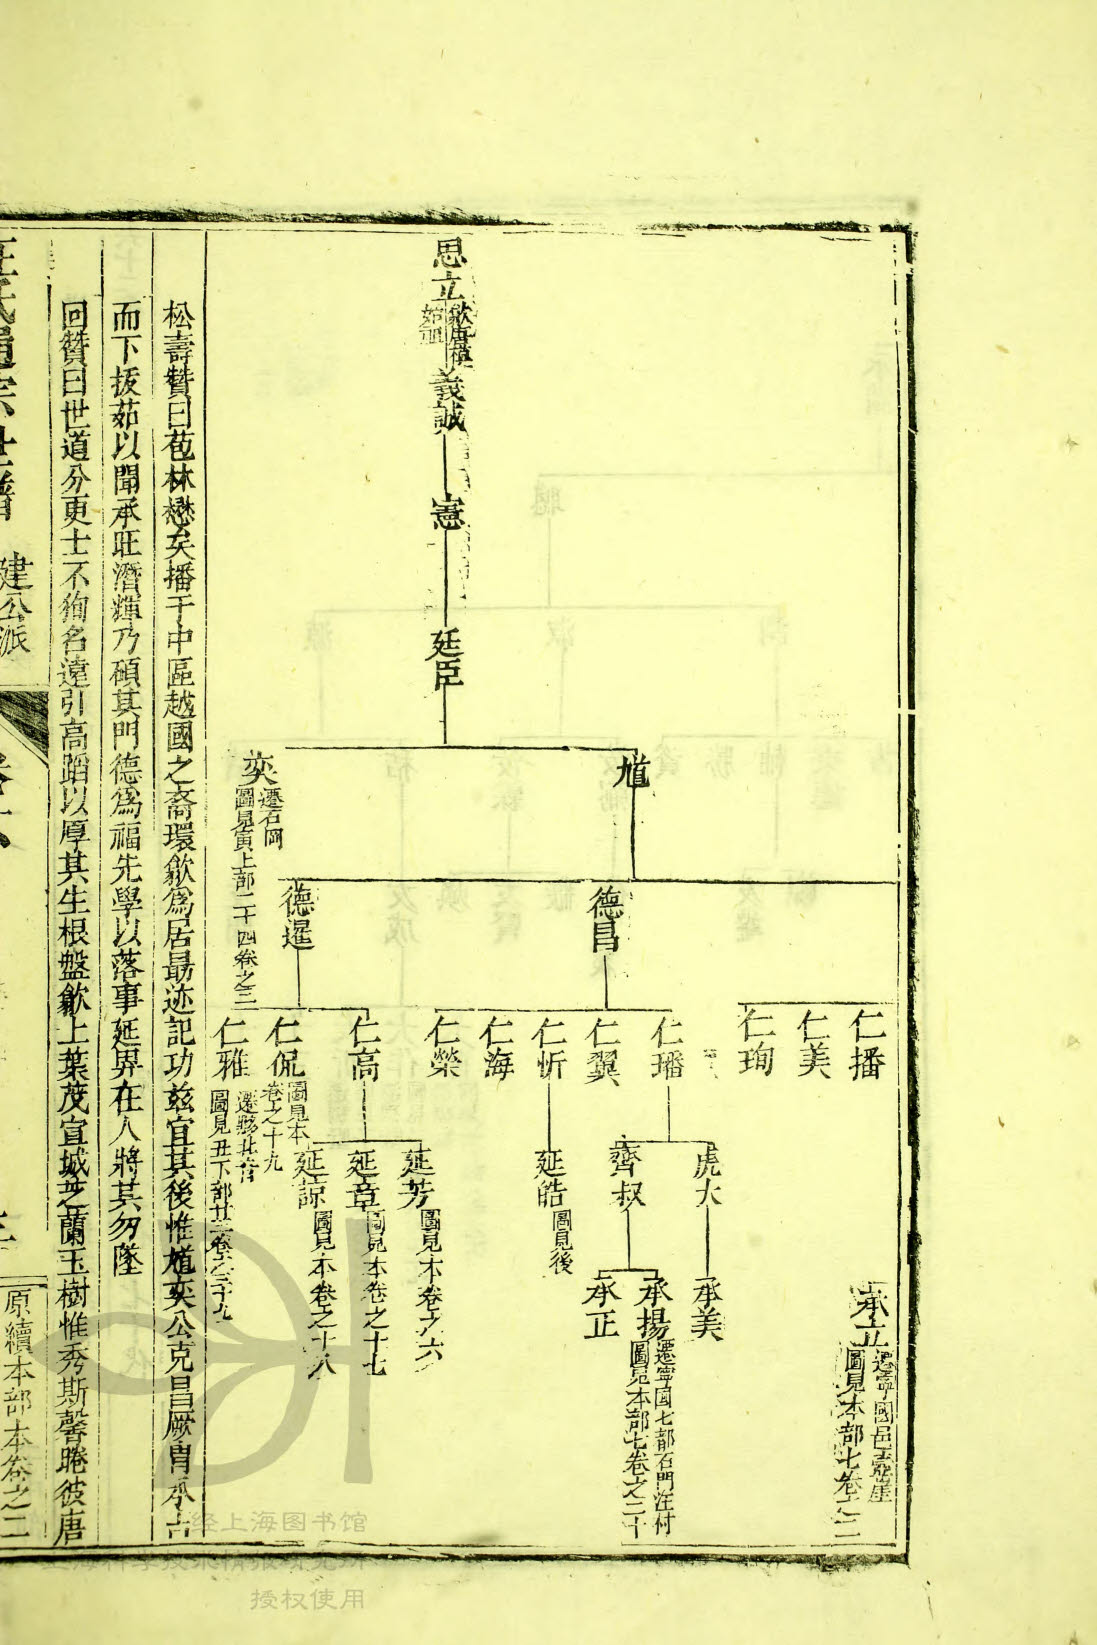 思立
歙唐模
始祖
義誠
憲
廷臣
馗
奕
遷石岡
圖見寅上部二十四卷之三
德昌
德暹
仁播
仁美
仁珣
仁璠
仁翼
仁忻
仁海
仁榮
仁高
仁侃
圖見本
卷之十九
仁雅
圖見丑下部廿
虎大
齊叔
延皓
圖見後
延芳
圖見本卷之六
延章
圖見本卷之十七
延諒
圖見本卷之十八
承立
遷寧國邑
圖見本部七卷之二
承美
承揚
遷寧國七部石門汪村
圖見本部七卷之二十
承正
松壽贊曰苞林懋矣播于中區越國之裔環歙爲居最迹記功玆宜其後惟馗奕公克昌厥胄承古
而下拔茹以聞承旺潛輝乃碩其門德爲福先學以落事延畀在人將其勿墜
回贊曰世道分更士不狥名遠引高蹈以厚其生根盤歙上葉茂宣城芝蘭玉樹惟秀斯馨睠彼唐
汪氏通宗世譜
建公派
原續本部本卷之二
经上海图书馆
授权使用